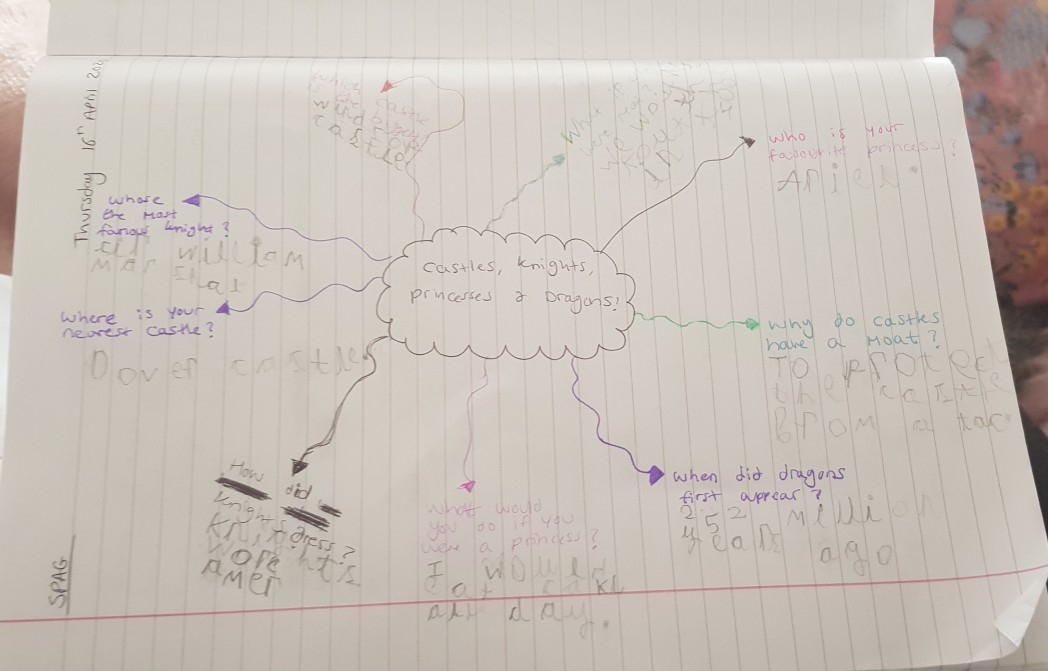 Thursday 16th April
SPAG
Castles, Knights,
Princesses & Dragons!
who is your
favourite princess?
Ariel.
Why do castles
have a moat?
To protect
the castle
from a tac
when did dragons
first appear?
252 million
years ago
What would
you do if you
were a princess?
I would
eat cake
all day.
How did
knights dress?
knights
wore
amer
where is your
nearest castle?
Dover castle
whose
the most
famous knight?
sir william
mar shal
castle
wind
castle